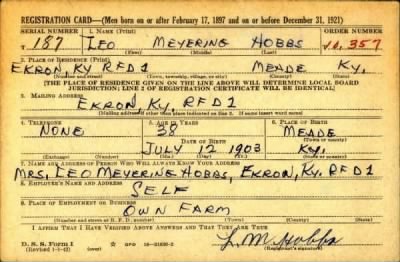 REGISTRATION CARD—(Men born on or after February 17, 1897 and on or before December 31, 1921)
SERIAL NUMBER 1. NAME (Print) ORDER NUMBER
T 187 LEO MEYERING HOBBS 10,357
(First) (Middle) (Last)
2. PLACE OF RESIDENCE (Print)
EKRON, KY. RFD 1 MEADE KY.
(Number and street) (Town, township, village, or city) (County) (State)
[THE PLACE OF RESIDENCE GIVEN ON THE LINE ABOVE WILL DETERMINE LOCAL BOARD
JURISDICTION; LINE 2 OF REGISTRATION CERTIFICATE WILL BE IDENTICAL]
3. MAILING ADDRESS
EKRON, KY. RFD 1
[Mailing address if other than place indicated on line 2. If same insert word same]
4. TELEPHONE 5. AGE IN YEARS 6. PLACE OF BIRTH
NONE 38 MEADE
DATE OF BIRTH (Town or county)
JULY 12 1903 KY.
(Exchange) (Number) (Mo.) (Day) (Yr.) (State or country)
7. NAME AND ADDRESS OF PERSON WHO WILL ALWAYS KNOW YOUR ADDRESS
MRS. LEO MEYERING HOBBS, EKRON, KY. RFD 1
8. EMPLOYER'S NAME AND ADDRESS
SELF
9. PLACE OF EMPLOYMENT OR BUSINESS
OWN FARM
(Number and street or R. F. D. number) (Town) (County) (State)
I AFFIRM THAT I HAVE VERIFIED ABOVE ANSWERS AND THAT THEY ARE TRUE
D. S. S. Form 1
(Revised 1-1-42) GPO 16—21630-2
L. M. Hobbs